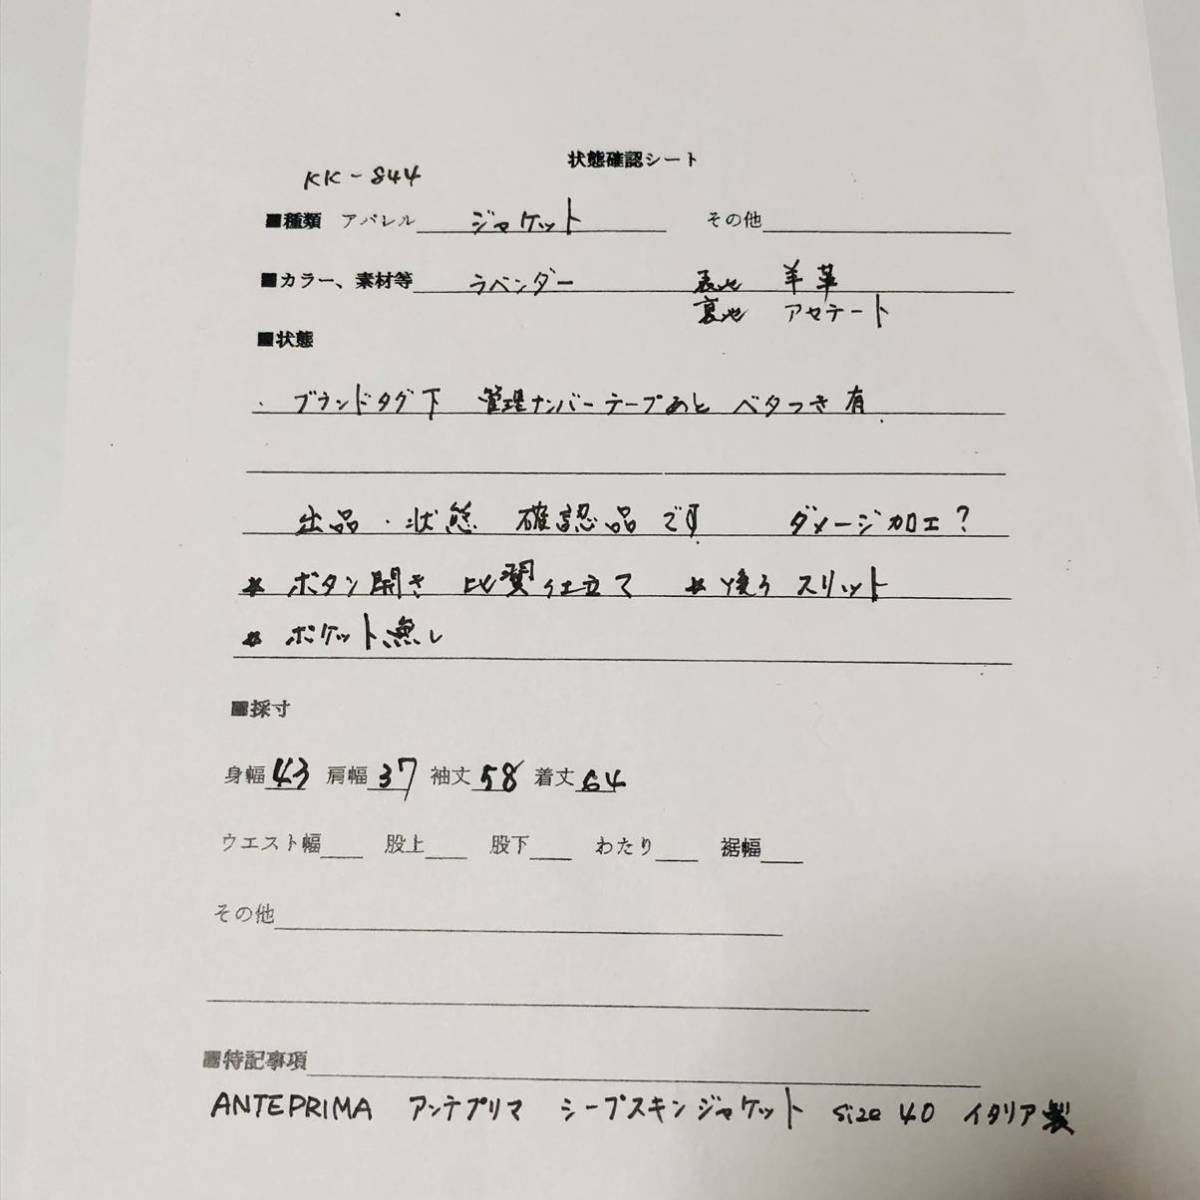 状態確認シート
KK-844
■種類 アパレル ジャケット その他
■カラー、素材等 ラベンダー 表地 羊革
裏地 アセテート
■状態
・ブランドタグ下 管理ナンバーテープあと ベタつき有
出品・状態 確認品です ダメージ加工?
* ボタン開き 比翼仕立て * 後ろ スリット
* ポケット無し
■採寸
身幅 43 肩幅 37 袖丈 58 着丈 64
ウエスト幅 股上 股下 わたり 裾幅
その他
■特記事項
ANTEPRIMA アンテプリマ シープスキンジャケット size 40 イタリア製